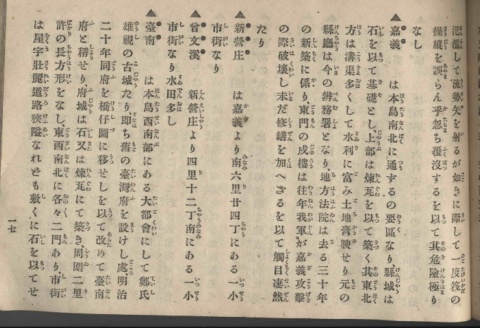 氾濫して流勢矢を射るが如きに際して一度筏の
操縱を誤らん乎忽ち覆沒するを以て其危險極り
なし
▲嘉義 は本島南北に通ずるの要區なり縣城は
石を以て基礎とし上部は煉瓦を以て築く其東北
方は溝渠多くして水利に富み土地膏腴せり元の
縣廳は今の辨務署となり地方法院は去る三十年
の新築に係り東門の戍樓は往年我軍が嘉義攻擊
の際破壞し未だ修繕を加へざるを以て觸目凄然
たり
▲新營庄 は嘉義より南六里廿四丁にある一小
市街なり
▲曾文溪 新營庄より四里十二丁南にある一小
市街なり水田多し
▲臺南 は本島西南部にある大都會にして鄭氏
雄視の古城たり即ち舊の臺灣府を設けし處明治
二十年同府を橋仔圖に移せしを以て改めて臺南
府と稱せり府城は石又は煉瓦にて築き周囲二里
許の長方形をなし東西南北に各々二門あり市街
は屋宇壯麗道路狹隘なれども敷くに石を以てせ
一七